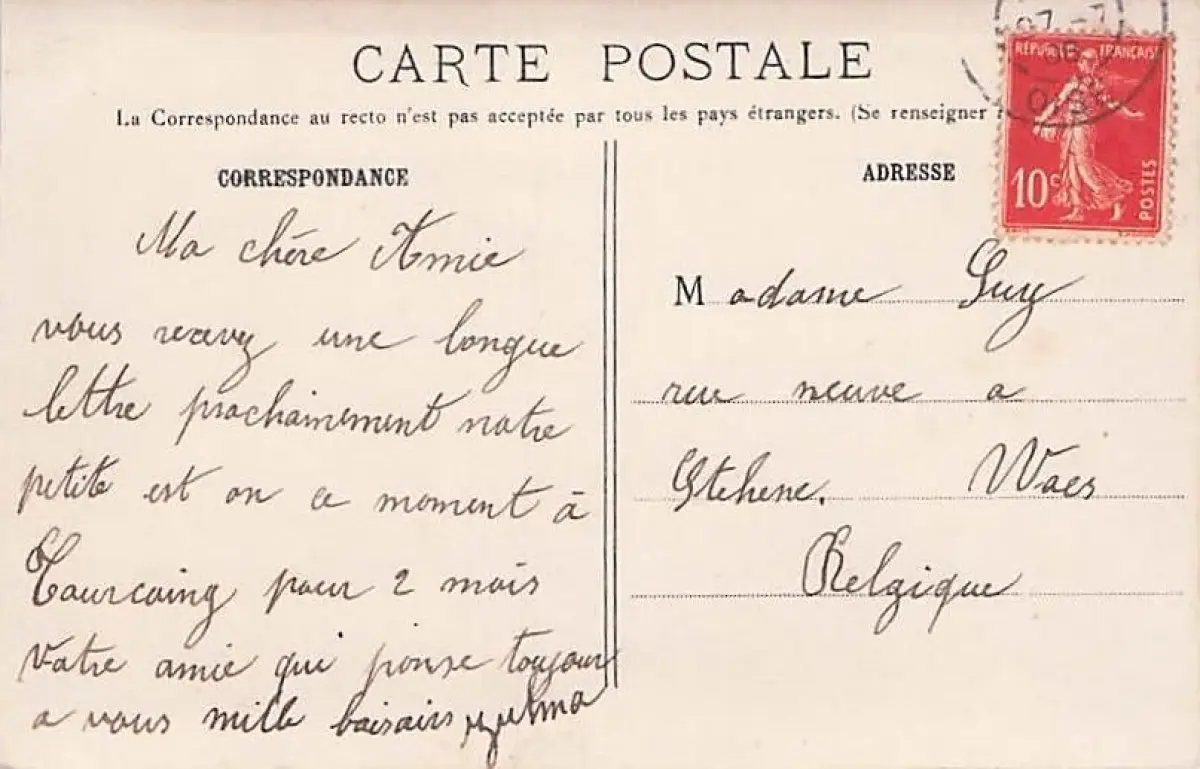 CARTE POSTALE
La Correspondance au recto n'est pas acceptée par tous les pays étrangers. (Se renseigner
CORRESPONDANCE
Ma chère Amie
vous recevez une longue
lettre prochainement notre
petite est en ce moment à
Tourcoing pour 2 mois
Votre amie qui pense toujours
a vous mille baisairs
ADRESSE
Madame Guy
rue neuve a
Stekene. Waes
Belgique
RÉPUBLIQUE FRANÇAISE
10c
POSTES